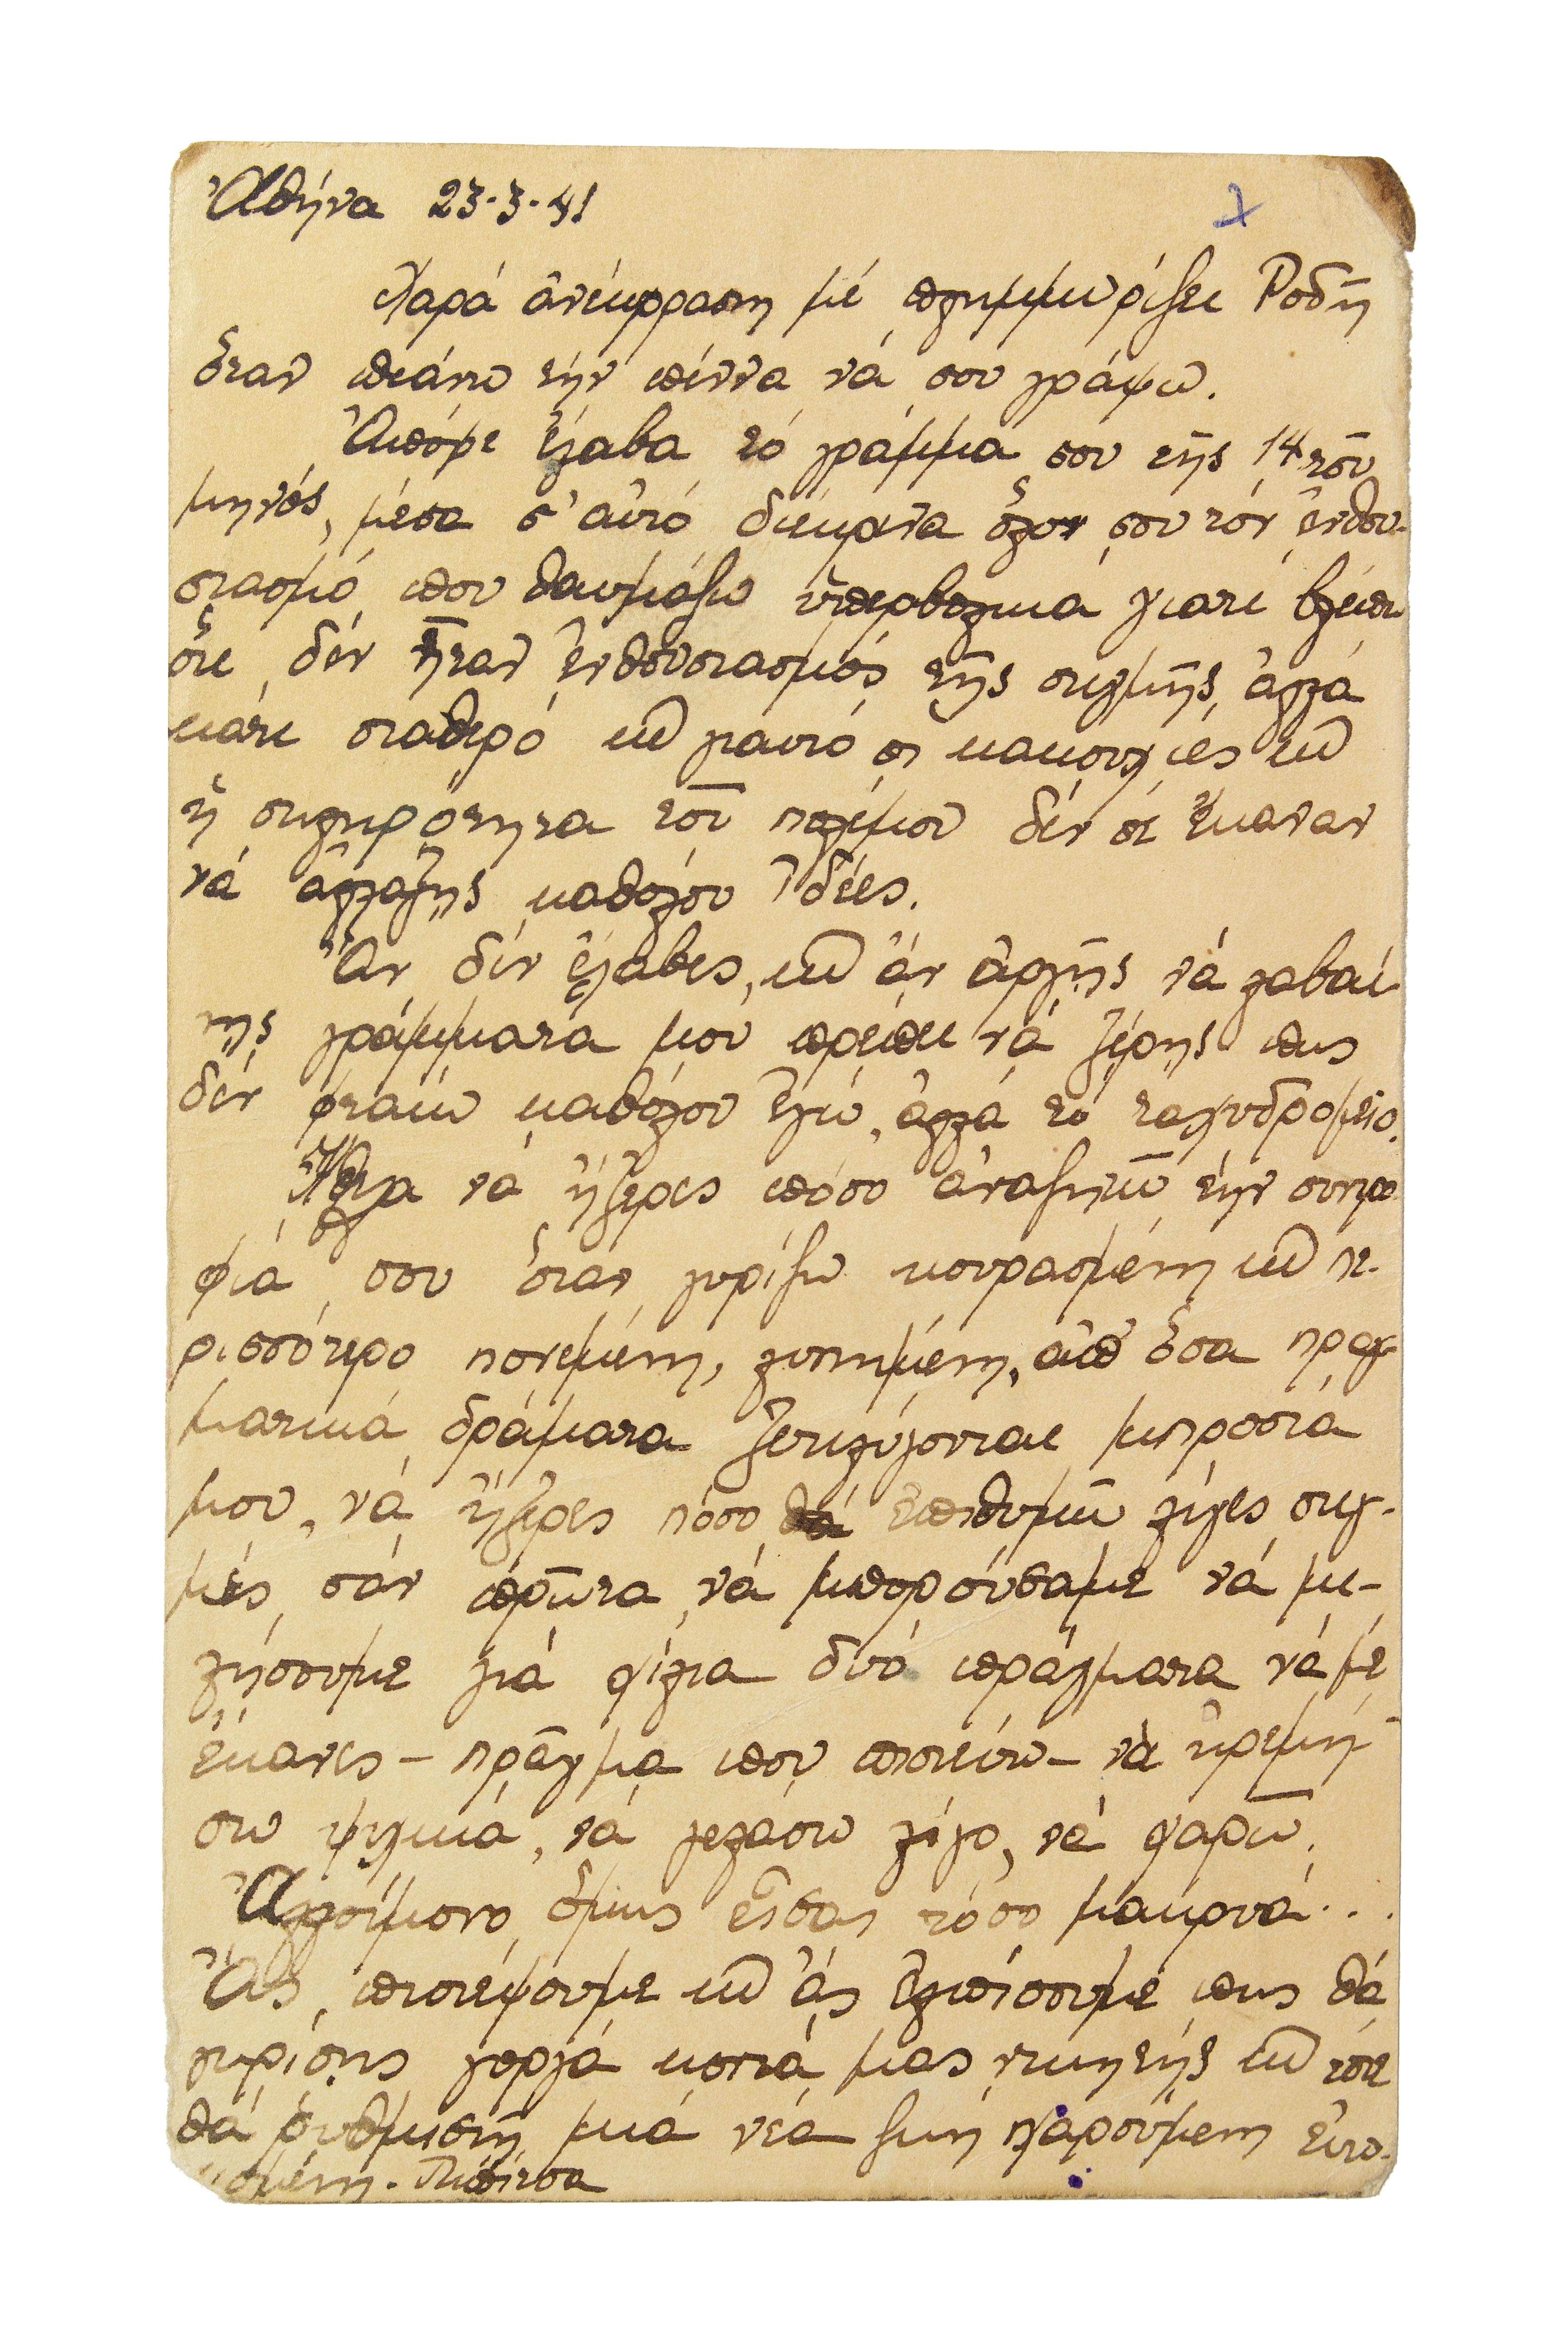 Ἀθήνα 23-3-41
Χαρά ἀνέκφραση μέ πλημμυρίζει Ροδῆ
ὅταν πιάνω τήν πέννα νά σου γράψω.
Ἀπόψε ἔλαβα τό γράμμα σου τῆς 14 τοῦ
μηνός, μέσα σ' αὐτό διέκρινα ὅλον σου τόν ἐνθου-
σιασμό που θαυμάζω ὑπερβολικά γιατί βλέπω
ὅτι δέν ἦταν ἐνθουσιασμός τῆς στιγμῆς, ἀλλά
κάτι σταθερό καί γιαυτό οἱ κακουχίες καί
ἡ σκληρότητα τοῦ πολέμου δέν σέ ἔκαναν
νά ἀλλάξῃς καθόλου ἰδέες.
Ἄν δέν ἔλαβες, καί ἄν ἀργῇς νά λαβαί-
νῃς γράμματά μου πρέπει νά ξέρῃς πως
δέν φταίω καθόλου ἐγώ, ἀλλά τό ταχυδρομεῖο.
Ἤθελα νά ἤξερες πόσο ἀναζητῶ τήν συντρο-
φιά σου ὅταν γυρίζω κουρασμένη καί πε-
ρισσότερο πονεμένη, λυπημένη, ἀπ' ὅσα πραγ-
ματικά δράματα ξετυλίγονται μπροστά
μου, νά ἤξερες πόσο ἐπιθυμῶ λίγες στιγ-
μές, σάν πρῶτα, νά μπορούσαμε νά μι-
λήσουμε γιά χίλια δυό πράγματα νά μέ
ἔκανες – πρᾶγμα που πιστεύω – νά ἠρεμή-
σω ψυχικά, νά γελάσω λίγο, νά χαρῶ.
Ἀλλοίμονο ὅμως εἶσαι τόσο μακρυά...
Ἄς πιστέψουμε καί ἄς ἐλπίσουμε πως θά
γυρίσῃς γοργά κοντά μας νικητής καί τότε
θά ρυθμισθῇ μιά νέα ζωή χαρούμενη εὐτυ-
χισμένη. Πιπίτσα